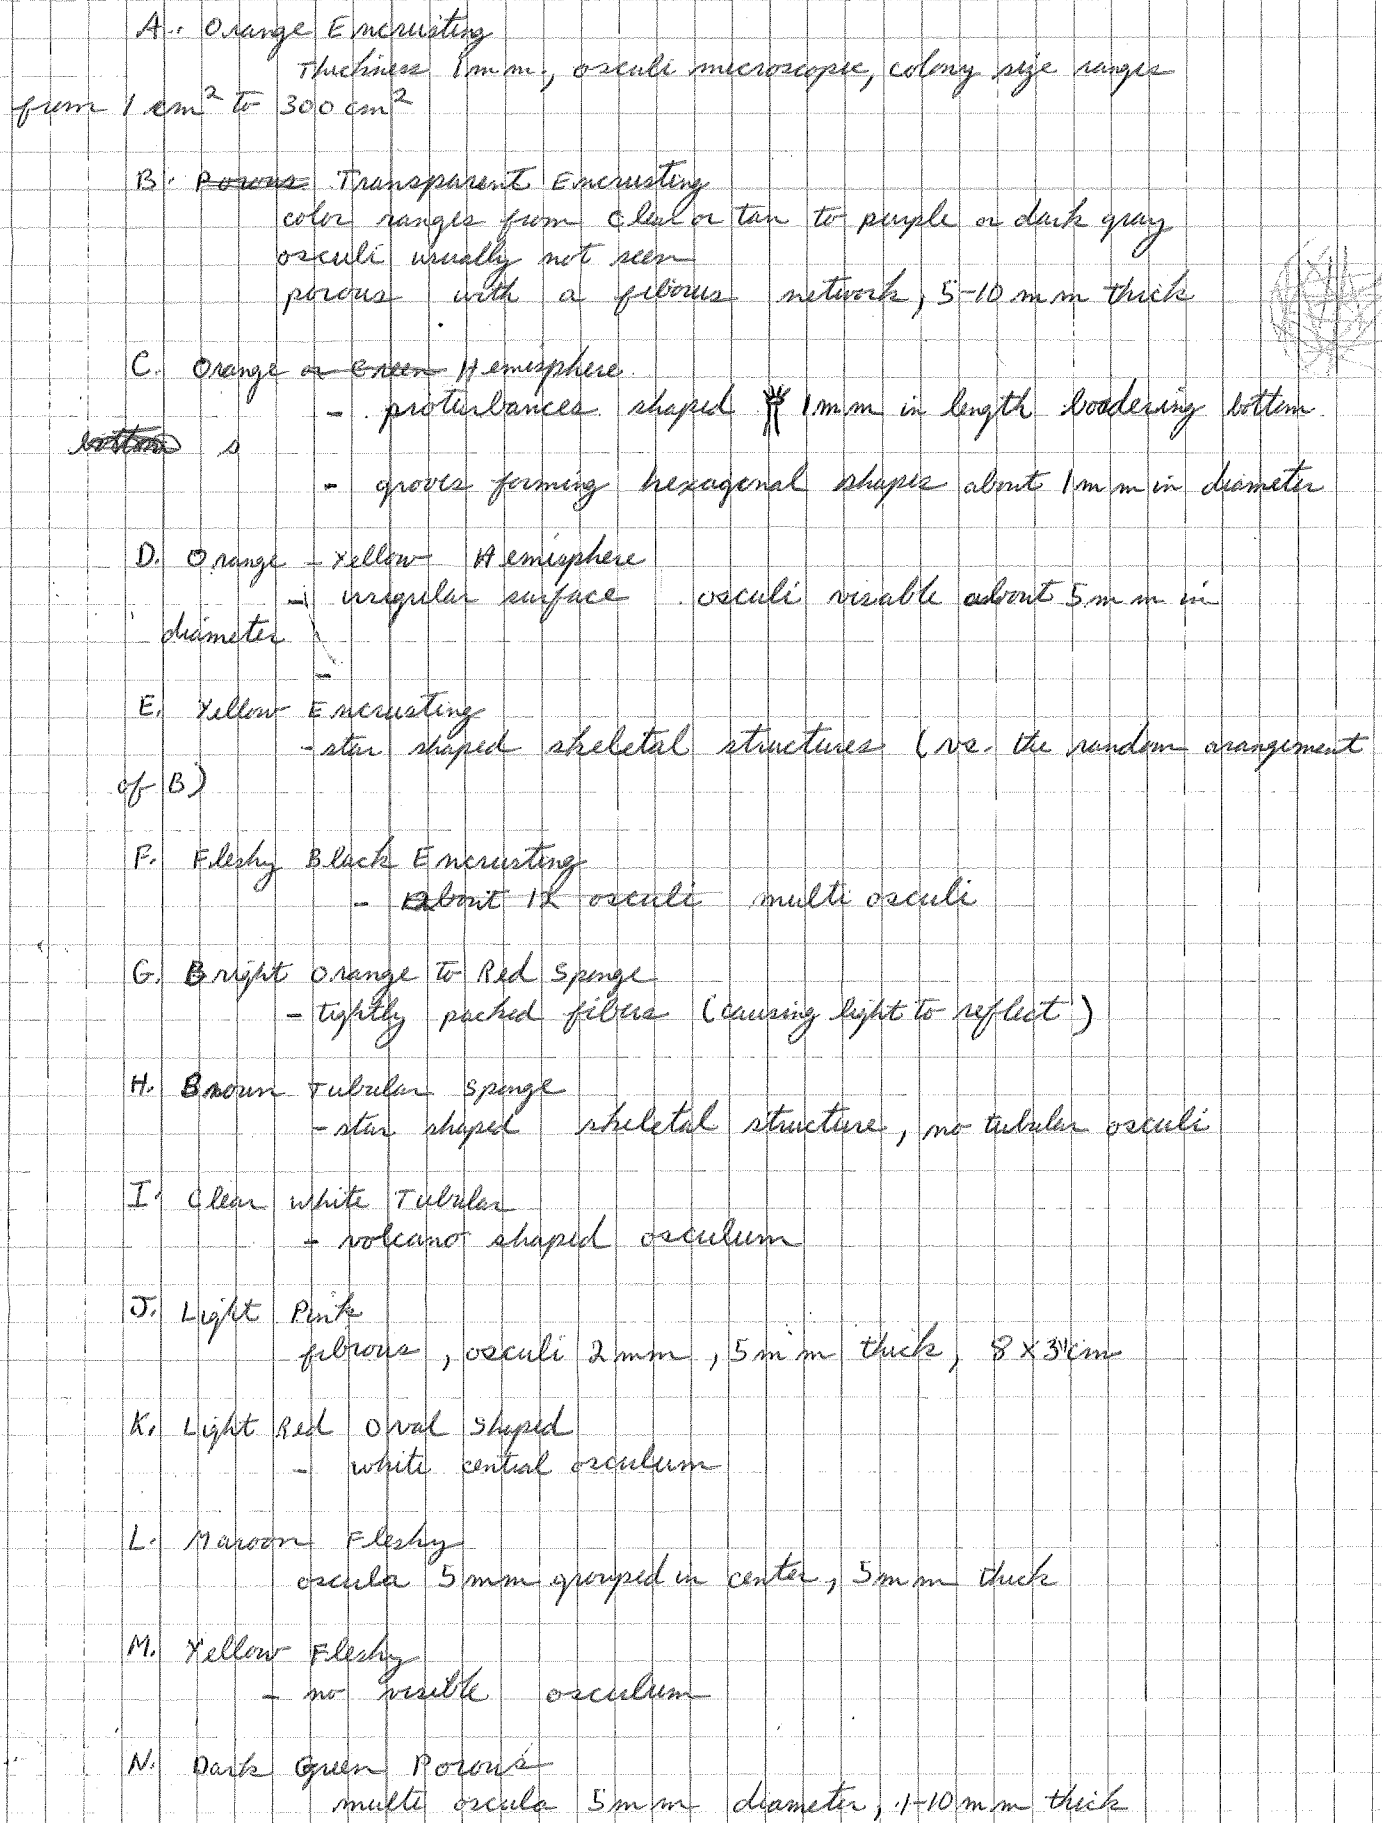 A. Orange Encrusting
Thickness 1mm., osculi microscopic, colony size ranges
from 1 cm² to 300 cm²
B. Porous Transparent Encrusting
color ranges from clear or tan to purple or dark gray
osculi usually not seen
porous with a fibrous network, 5-10 mm thick
C. Orange or Green Hemisphere
- proturbances shaped 1mm in length boadering bottom
bottom s
- groves forming hexagonal shapes about 1mm in diameter
D. Orange - Yellow Hemisphere
- irregular surface osculi visable about 5mm in
diameter
-
E. Yellow Encrusting
- star shaped skeletal structures (vs. the random arangement
of B)
F. Fleshy Black Encrusting
- about 12 osculi multi osculi
G. Bright Orange to Red Sponge
- tightly packed fibers (causing light to reflect)
H. Brown Tubular Sponge
- star shaped skeletal structure, no tubular osculi
I. Clear White Tubular
- volcano shaped osculum
J. Light Pink
fibrous, osculi 2mm, 5mm thick, 8 x 3 cm
K. Light Red Oval Shaped
- white central osculum
L. Maroon Fleshy
oscula 5mm grouped in center, 5mm thick
M. Yellow Fleshy
- no visible osculum
N. Dark Green Porous
multi oscula 5mm diameter, 1-10mm thick